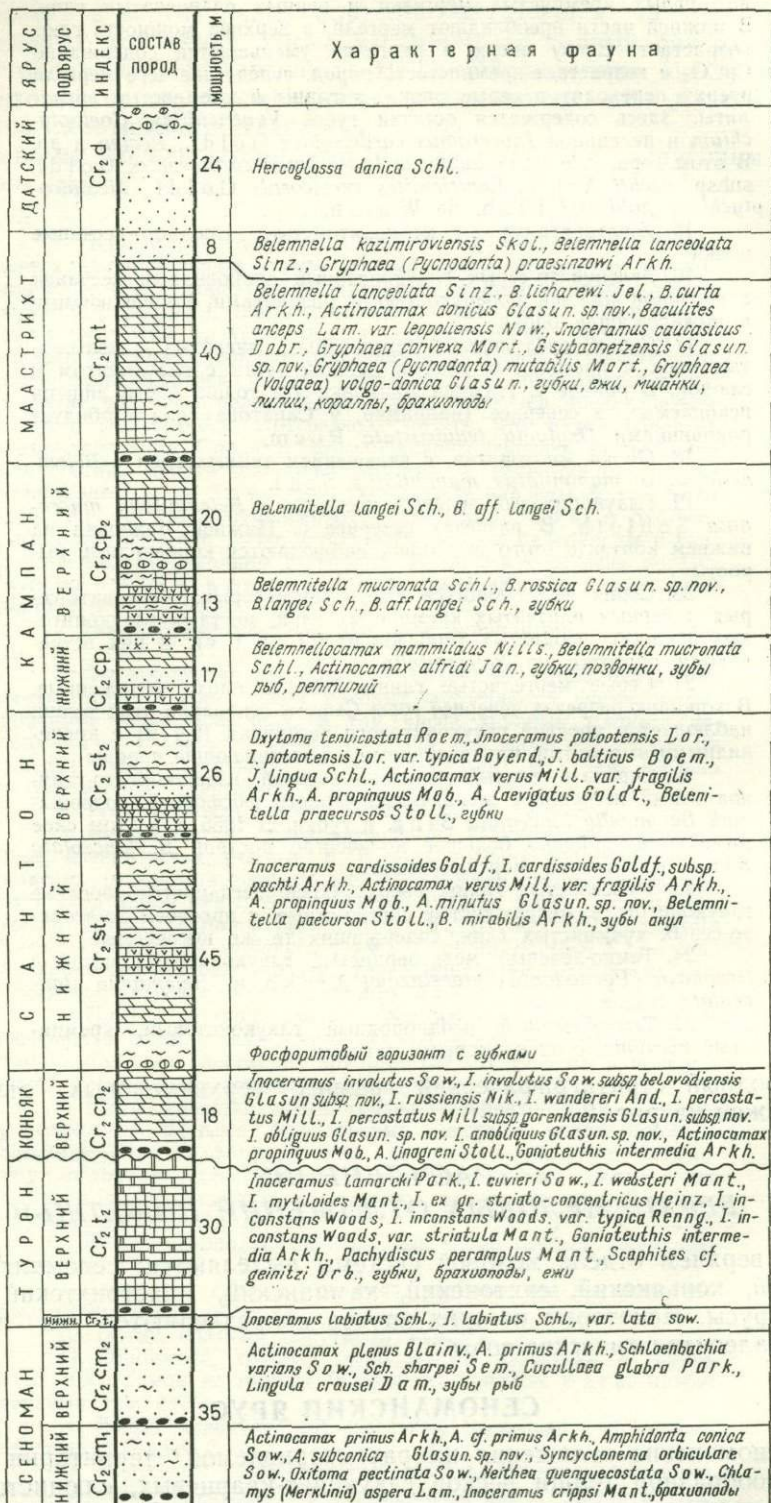 ЯРУС
ПОДЪЯРУС
ИНДЕКС
СОСТАВ
ПОРОД
МОЩНОСТЬ, М
Характерная фауна
ДАТСКИЙ
Cr₂d
24
Hercoglossa danica Schl.
8
Belemnella kazimiroviensis Skol., Belemnella lanceolata
Sinz., Gryphaea (Pycnodonta) praesinzowi Arkh.
МААСТРИХТ
Cr₂mt
40
Belemnella lanceolata Sinz., B. licharewi Jel., B. curta
Arkh., Actinocamax donicus Glasun. sp. nov., Baculites
anceps Lam. var. leopoliensis Now., Jnoceramus caucasicus
Dobr., Gryphaea convexa Mort., G. sybaonetzensis Glasun.
sp. nov., Gryphaea (Pycnodonta) mutabilis Mort., Gryphaea
(Volgaea) volgo-donica Glasun., губки, ежи, мшанки,
лилии, кораллы, брахиоподы
КАМПАН
ВЕРХНИЙ
Cr₂cp₂
20
Belemnitella langei Sch., B. aff. langei Sch.
13
Belemnitella mucronata Schl., B. rossica Glasun. sp. nov.,
B. langei Sch., B. aff. langei Sch., губки
НИЖНИЙ
Cr₂cp₁
17
Belemnellocamax mammilatus Nills., Belemnitella mucronata
Schl., Actinocamax alfridi Jan., губки, позвонки, зубы
рыб, рептилий
САНТОН
ВЕРХНИЙ
Cr₂st₂
26
Oxytoma tenuicostata Roem., Jnoceramus patootensis Lor.,
I. patootensis Lor. var. typica Boyend., J. balticus Boem.,
J. lingua Schl., Actinocamax verus Mill. var. fragilis
Arkh., A. propinquus Mob., A. laevigatus Goldt., Beleni-
tella praecursos Stoll., губки
НИЖНИЙ
Cr₂st₁
45
Inoceramus cardissoides Goldf., I. cardissoides Goldf., subsp.
pachti Arkh., Actinocamax verus Mill. ver. fragilis Arkh.,
A. propinquus Mob., A. minutus Glasun. sp. nov., Belemni-
tella paecursor Stoll., B. mirabilis Arkh., зубы акул
Фосфоритовый горизонт с губками
КОНЬЯК
ВЕРХНИЙ
Cr₂cn₂
18
Inoceramus involutus Sow., I. involutus Sow. subsp belovodiensis
Glasun subsp. nov., I. russiensis Nik., I. wandereri And., I. percosta-
tus Mill., I. percostatus Mill subsp. gorenkaensis Glasun. subsp. nov.
I. obliguus Glasun. sp. nov. I. anobliguus Glasun. sp. nov., Actinocamax
propinquus Mob., A. linagreni Stoll., Gonioteuthis intermedia Arkh.
ТУРОН
ВЕРХНИЙ
Cr₂t₂
30
Inoceramus lamarcki Park., I. cuvieri Sow., I. websteri Mant.,
I. mytiloides Mant., I. ex gr. striato-concentricus Heinz, I. in-
constans Woods, I. inconstans Woods. var. typica Renng., I. in-
constans Woods, var. striatula Mant., Gonioteuthis interme-
dia Arkh., Pachydiscus peramplus Mant., Scaphites cf.
geinitzi Orb., губки, брахиоподы, ежи
НИЖН.
Cr₂t₁
2
Inoceramus labiatus Schl., I. labiatus Schl., var. lata sow.
СЕНОМАН
ВЕРХНИЙ
Cr₂cm₂
35
Actinocamax plenus Blainv., A. primus Arkh., Schloenbachia
varians Sow., Sch. sharpei Sem., Cucullaea glabra Park.,
Lingula crausei Dam., зубы рыб
НИЖНИЙ
Cr₂cm₁
Actinocamax primus Arkh., A. cf. primus Arkh., Amphidonta conica
Sow., A. subconica Glasun. sp. nov., Syncyclonema orbiculare
Sow., Oxitoma pectinata Sow., Neithea quenquecostata Sow., Chla-
mys (Merklinia) aspera Lam., Inoceramus crippsi Mant., брахиоподы